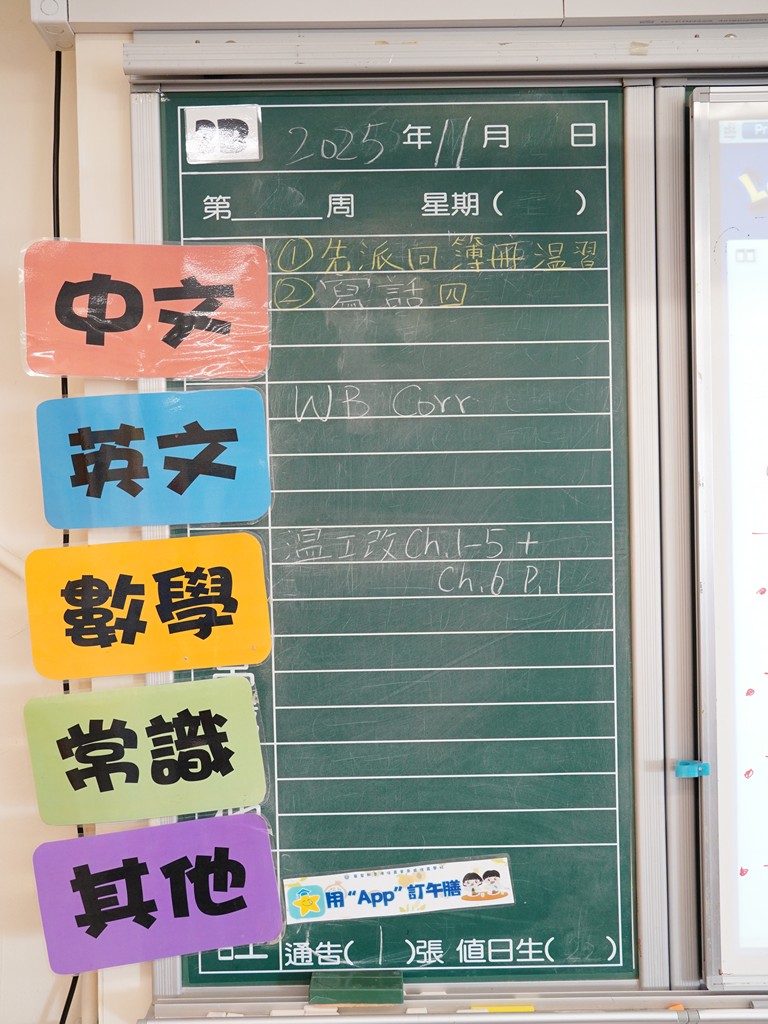 2B 2025年11月 日
第 周 星期( )
中文 ①先派回簿冊温習
②寫話四
英文 WB Corr
數學 温工改Ch.1-5+
Ch.6 P.1
常識
其他
用“App”訂午膳
通告(1)張 值日生( )